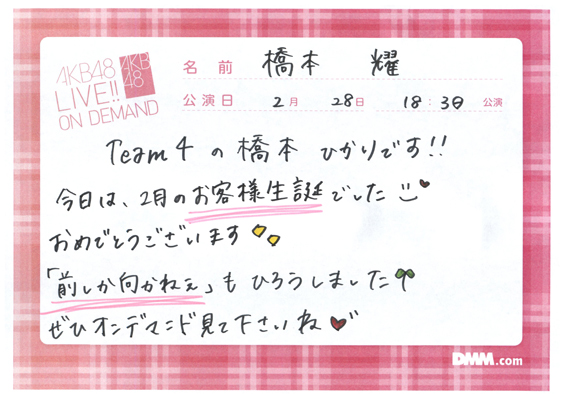 AKB48
LIVE!!
ON DEMAND
AKB
48
名前 橋本 耀
公演日 2月 28日 18:30 公演
Team4の橋本ひかりです!!
今日は、2月のお客様生誕でした
おめでとうございます
「前しか向かねぇ」もひろうしました
ぜひオンデマンド見て下さいね
DMM.com